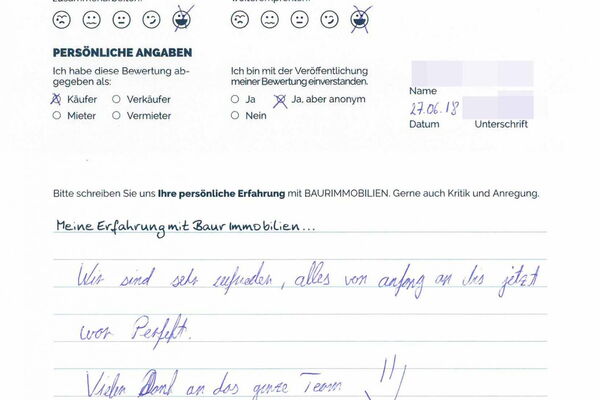 PERSÖNLICHE ANGABEN
Ich habe diese Bewertung ab-
gegeben als:
Käufer Verkäufer
Mieter Vermieter
Ich bin mit der Veröffentlichung
meiner Bewertung einverstanden.
Ja Ja, aber anonym
Nein
Name
27.06.18
Datum Unterschrift
Bitte schreiben Sie uns Ihre persönliche Erfahrung mit BAURIMMOBILIEN. Gerne auch Kritik und Anregung.
Meine Erfahrung mit Baur Immobilien...
Wir sind sehr zufrieden, alles von anfang an bis jetzt
war Perfekt.
Vielen Dank an das ganze Team !!!